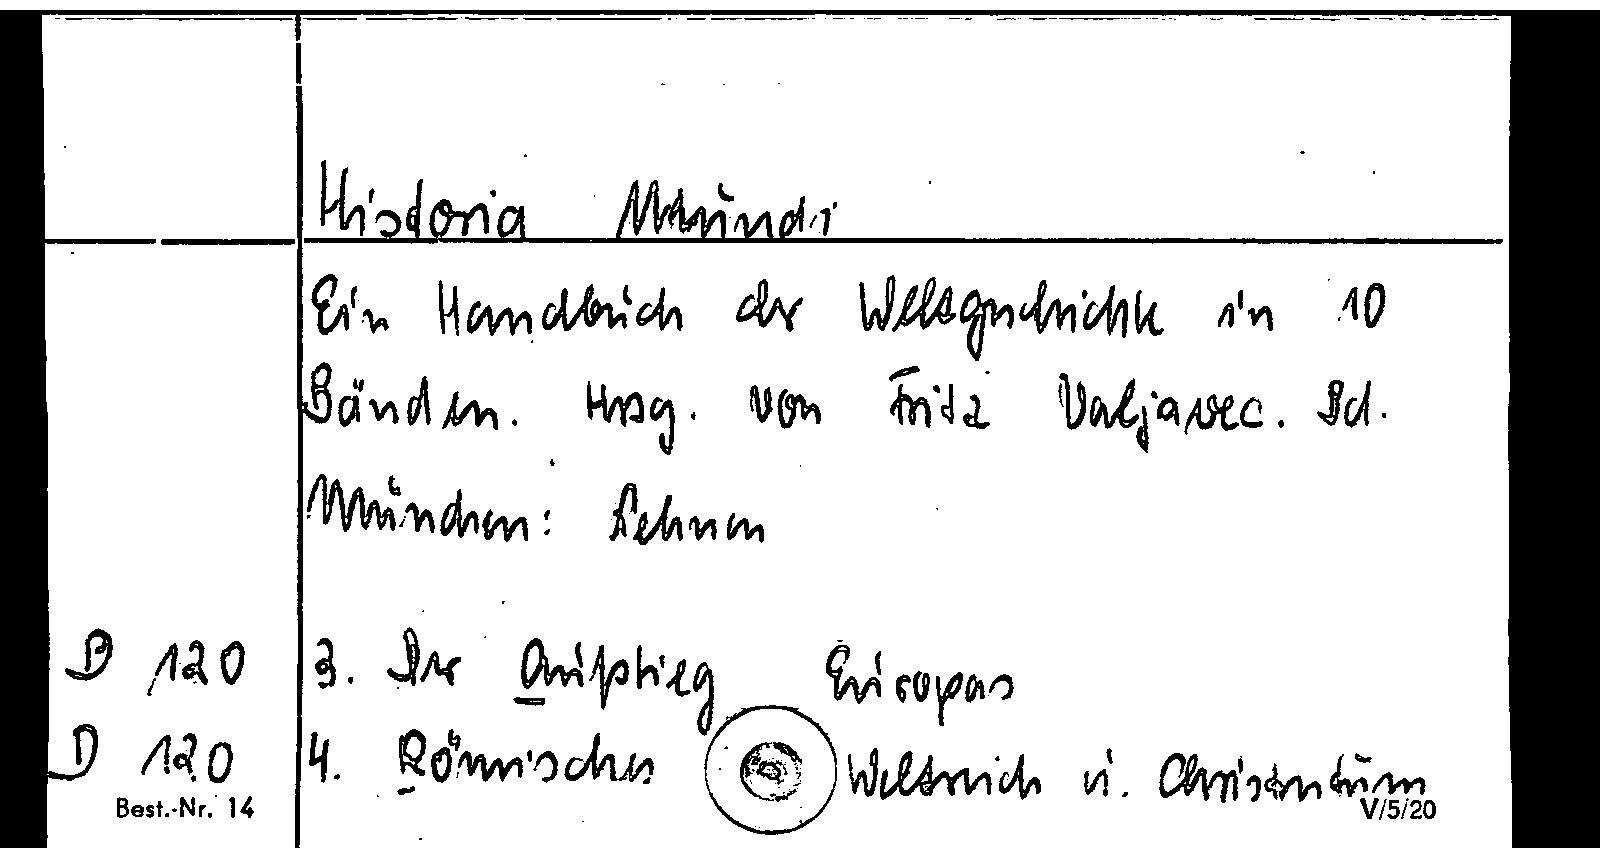 Historia Mundi
Ein Handbuch der Weltgeschichte in 10
Bänden. Hrsg. von Fritz Valjavec. Bd.
München: Lehnen
B 120 3. Der Aufstieg Europas
D 120 4. Römisches Weltreich u. Christentum
Best.-Nr. 14 V/5/20